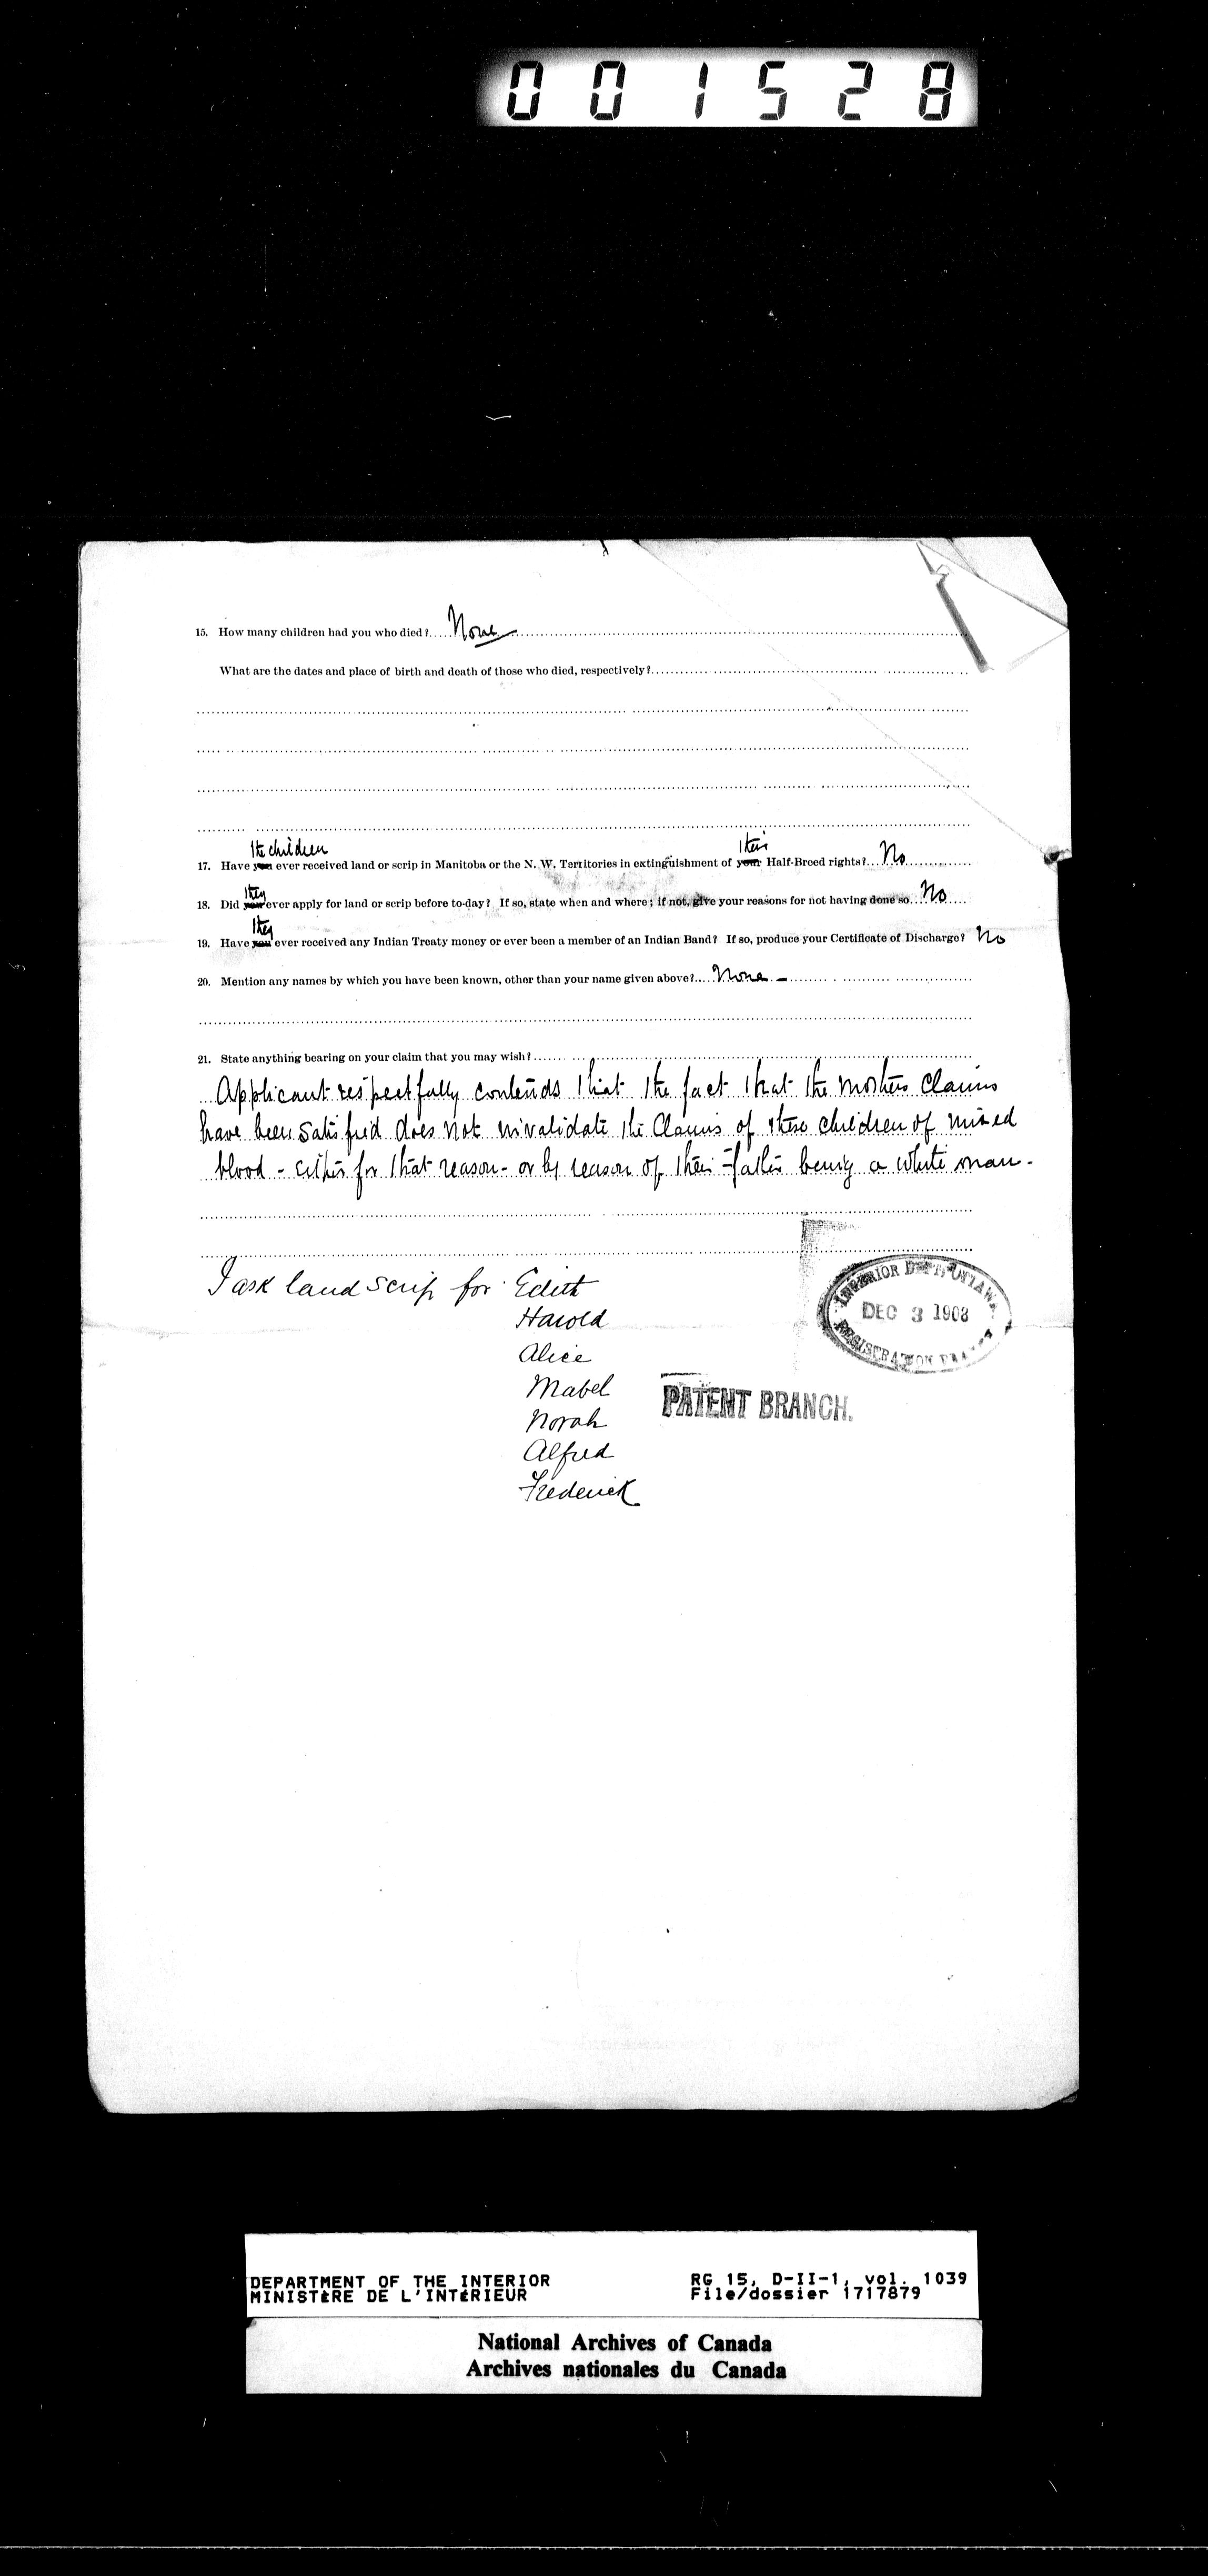 001528
15. How many children had you who died? None
What are the dates and place of birth and death of those who died, respectively?
the children their
17. Have you ever received land or scrip in Manitoba or the N. W. Territories in extinguishment of your Half-Breed rights? No
they
18. Did you ever apply for land or scrip before to-day? If so, state when and where; if not, give your reasons for not having done so. No
they
19. Have you ever received any Indian Treaty money or ever been a member of an Indian Band? If so, produce your Certificate of Discharge? No
20. Mention any names by which you have been known, other than your name given above? None -
21. State anything bearing on your claim that you may wish?
Applicant respectfully contends that the fact that the mothers Claims
have been satisfied does not invalidate the Claims of these children of mixed
blood - either for that reason - or by reason of their father being a white man -
I ask land scrip for Edith
Harold
Alice
Mabel
Norah
Alfred
Frederick
INTERIOR DEPT, OTTAWA.
DEC 3 1908
REGISTRATION BRANCH
PATENT BRANCH.
DEPARTMENT OF THE INTERIOR RG 15, D-II-1, vol. 1039
MINISTÈRE DE L'INTÉRIEUR File/dossier 1717879
National Archives of Canada
Archives nationales du Canada